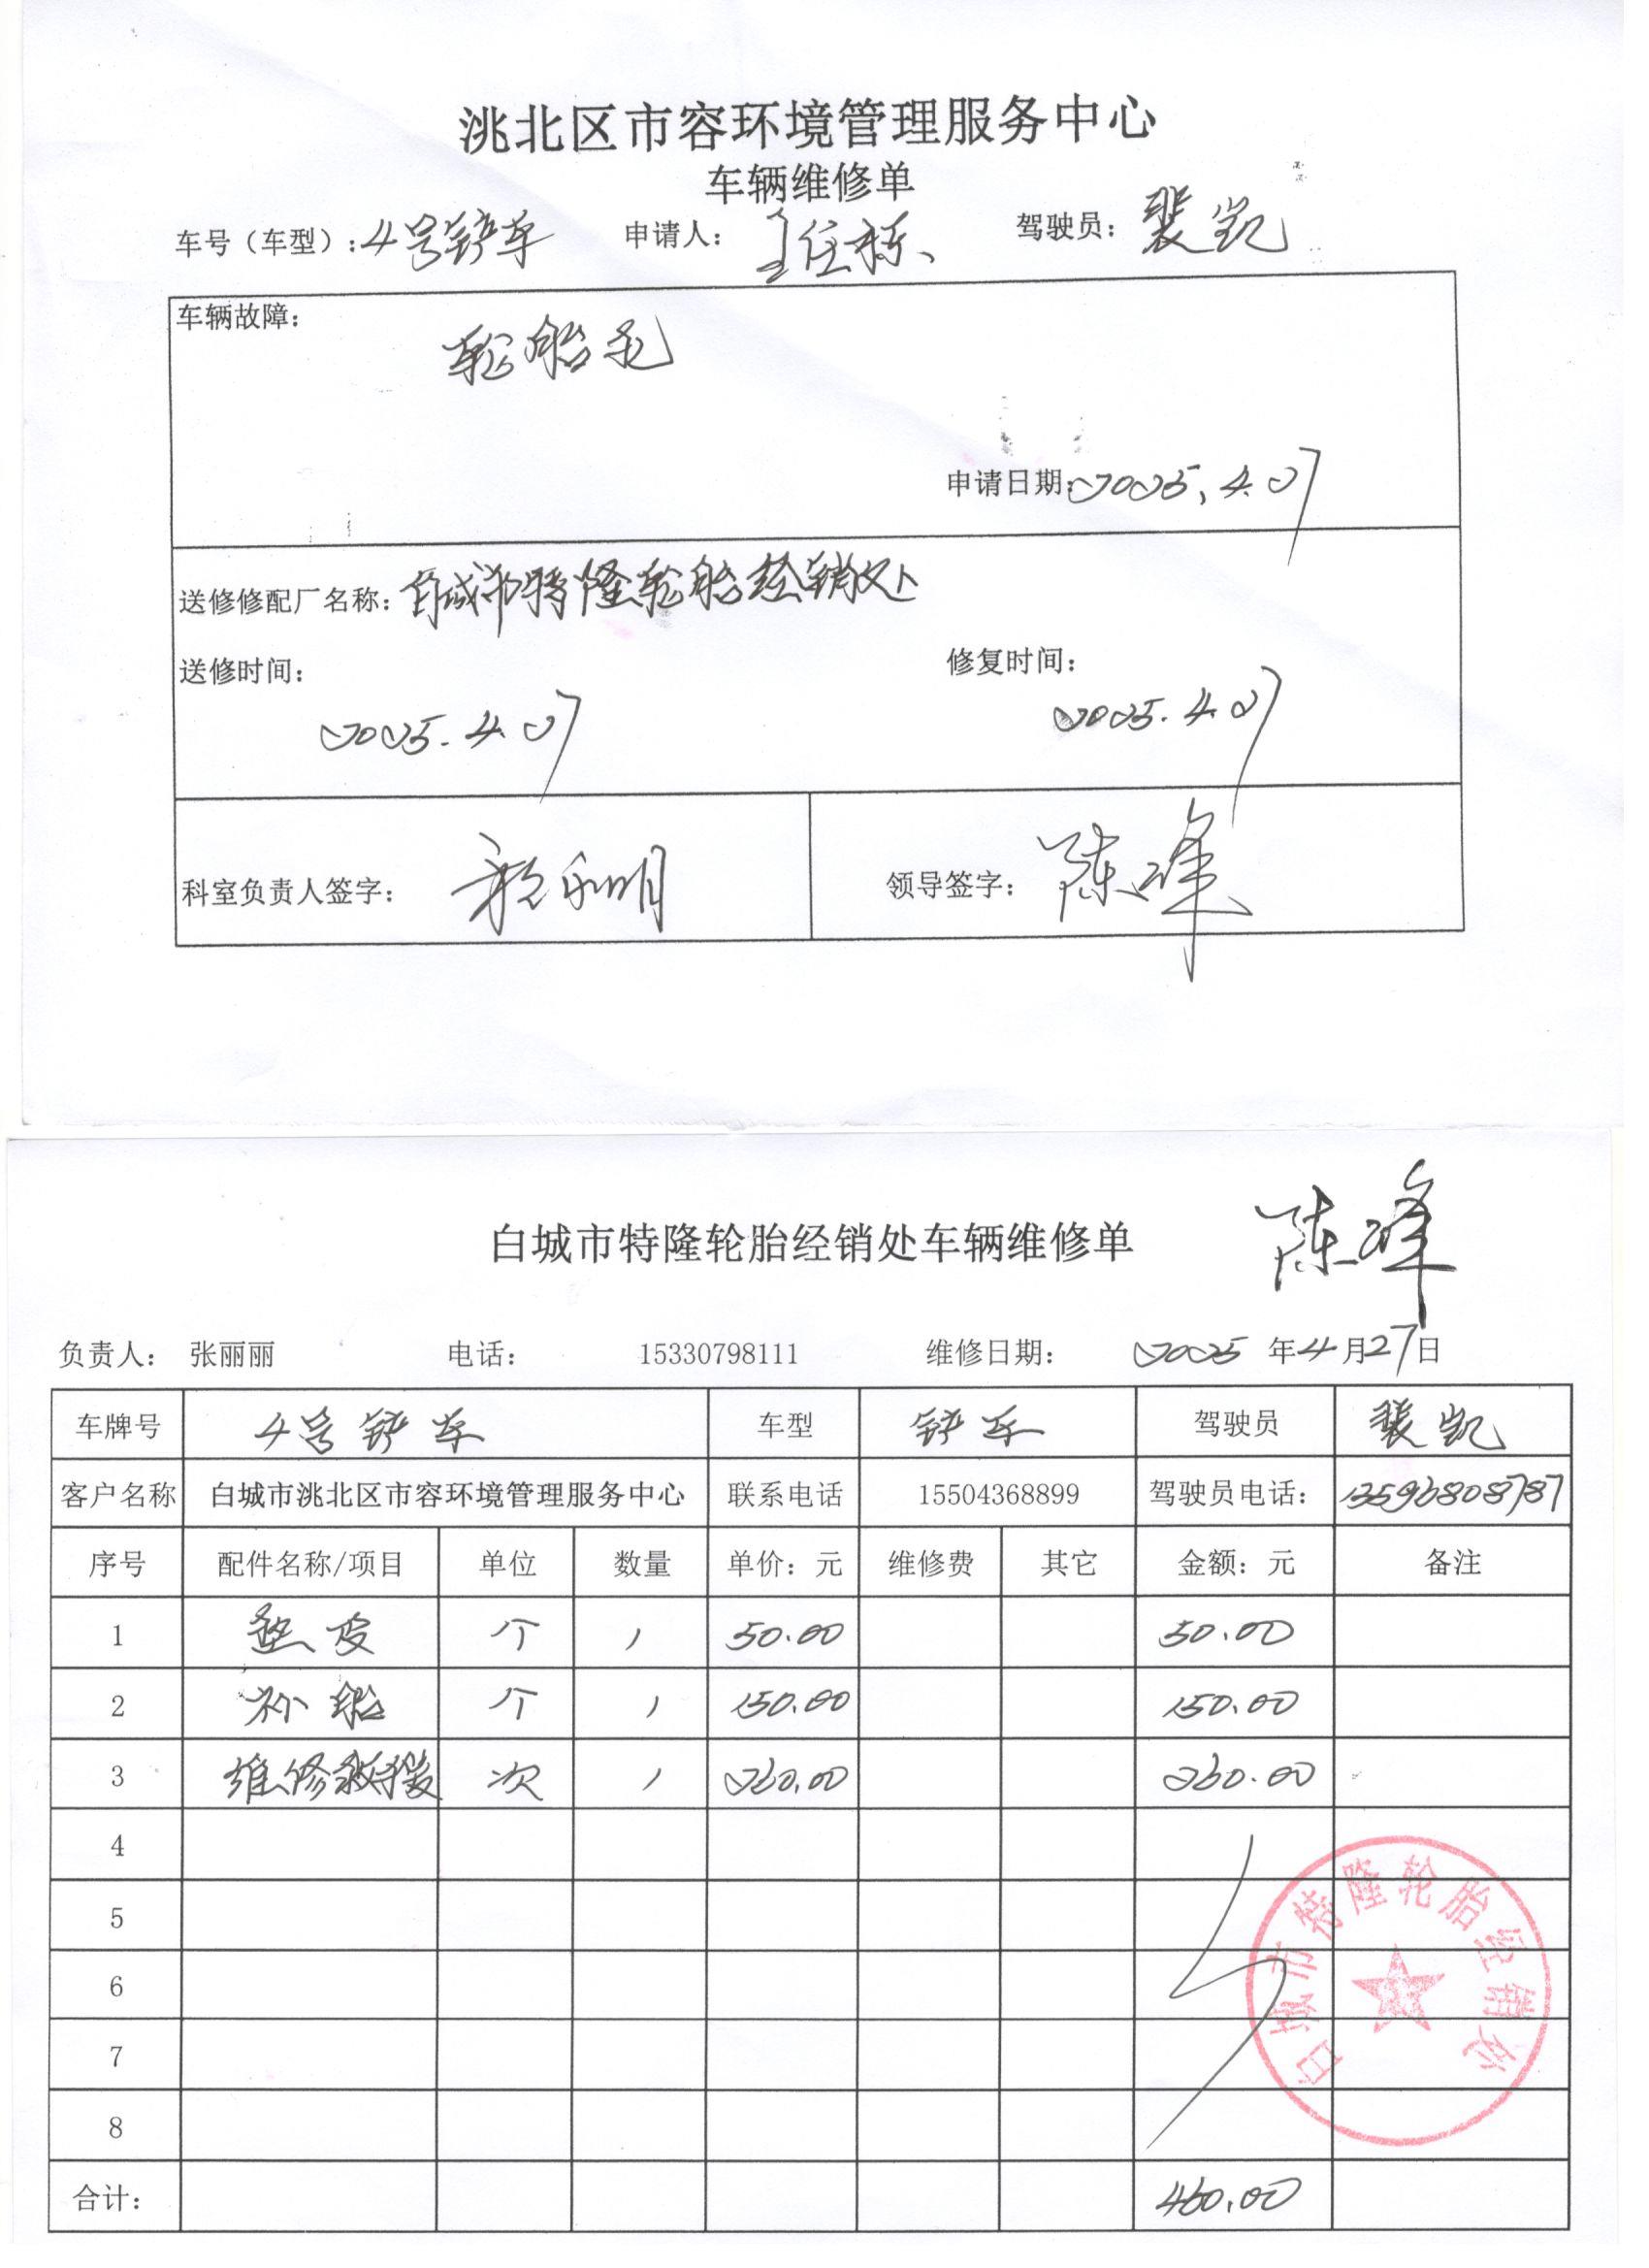 洮北区市容环境管理服务中心
车辆维修单
车号（车型）：4号铲车 申请人： 驾驶员：裴凯
车辆故障：
轮胎亏
申请日期：2025.4.27
送修修配厂名称：白城市特隆轮胎经销处
送修时间： 修复时间：
2025.4.27 2025.4.27
科室负责人签字： 领导签字：陈峰
陈峰
白城市特隆轮胎经销处车辆维修单
负责人： 张丽丽 电话： 15330798111 维修日期： 2025 年4月27日
车牌号 4号铲车 车型 铲车 驾驶员 裴凯
客户名称 白城市洮北区市容环境管理服务中心 联系电话 15504368899 驾驶员电话： 13596808787
序号 配件名称/项目 单位 数量 单价：元 维修费 其它 金额：元 备注
1 垫皮 个 1 50.00 50.00
2 补胎 个 1 150.00 150.00
3 维修救援 次 1 260.00 260.00
4
5
6
7
8
合计： 460.00
白城市特隆轮胎经销处